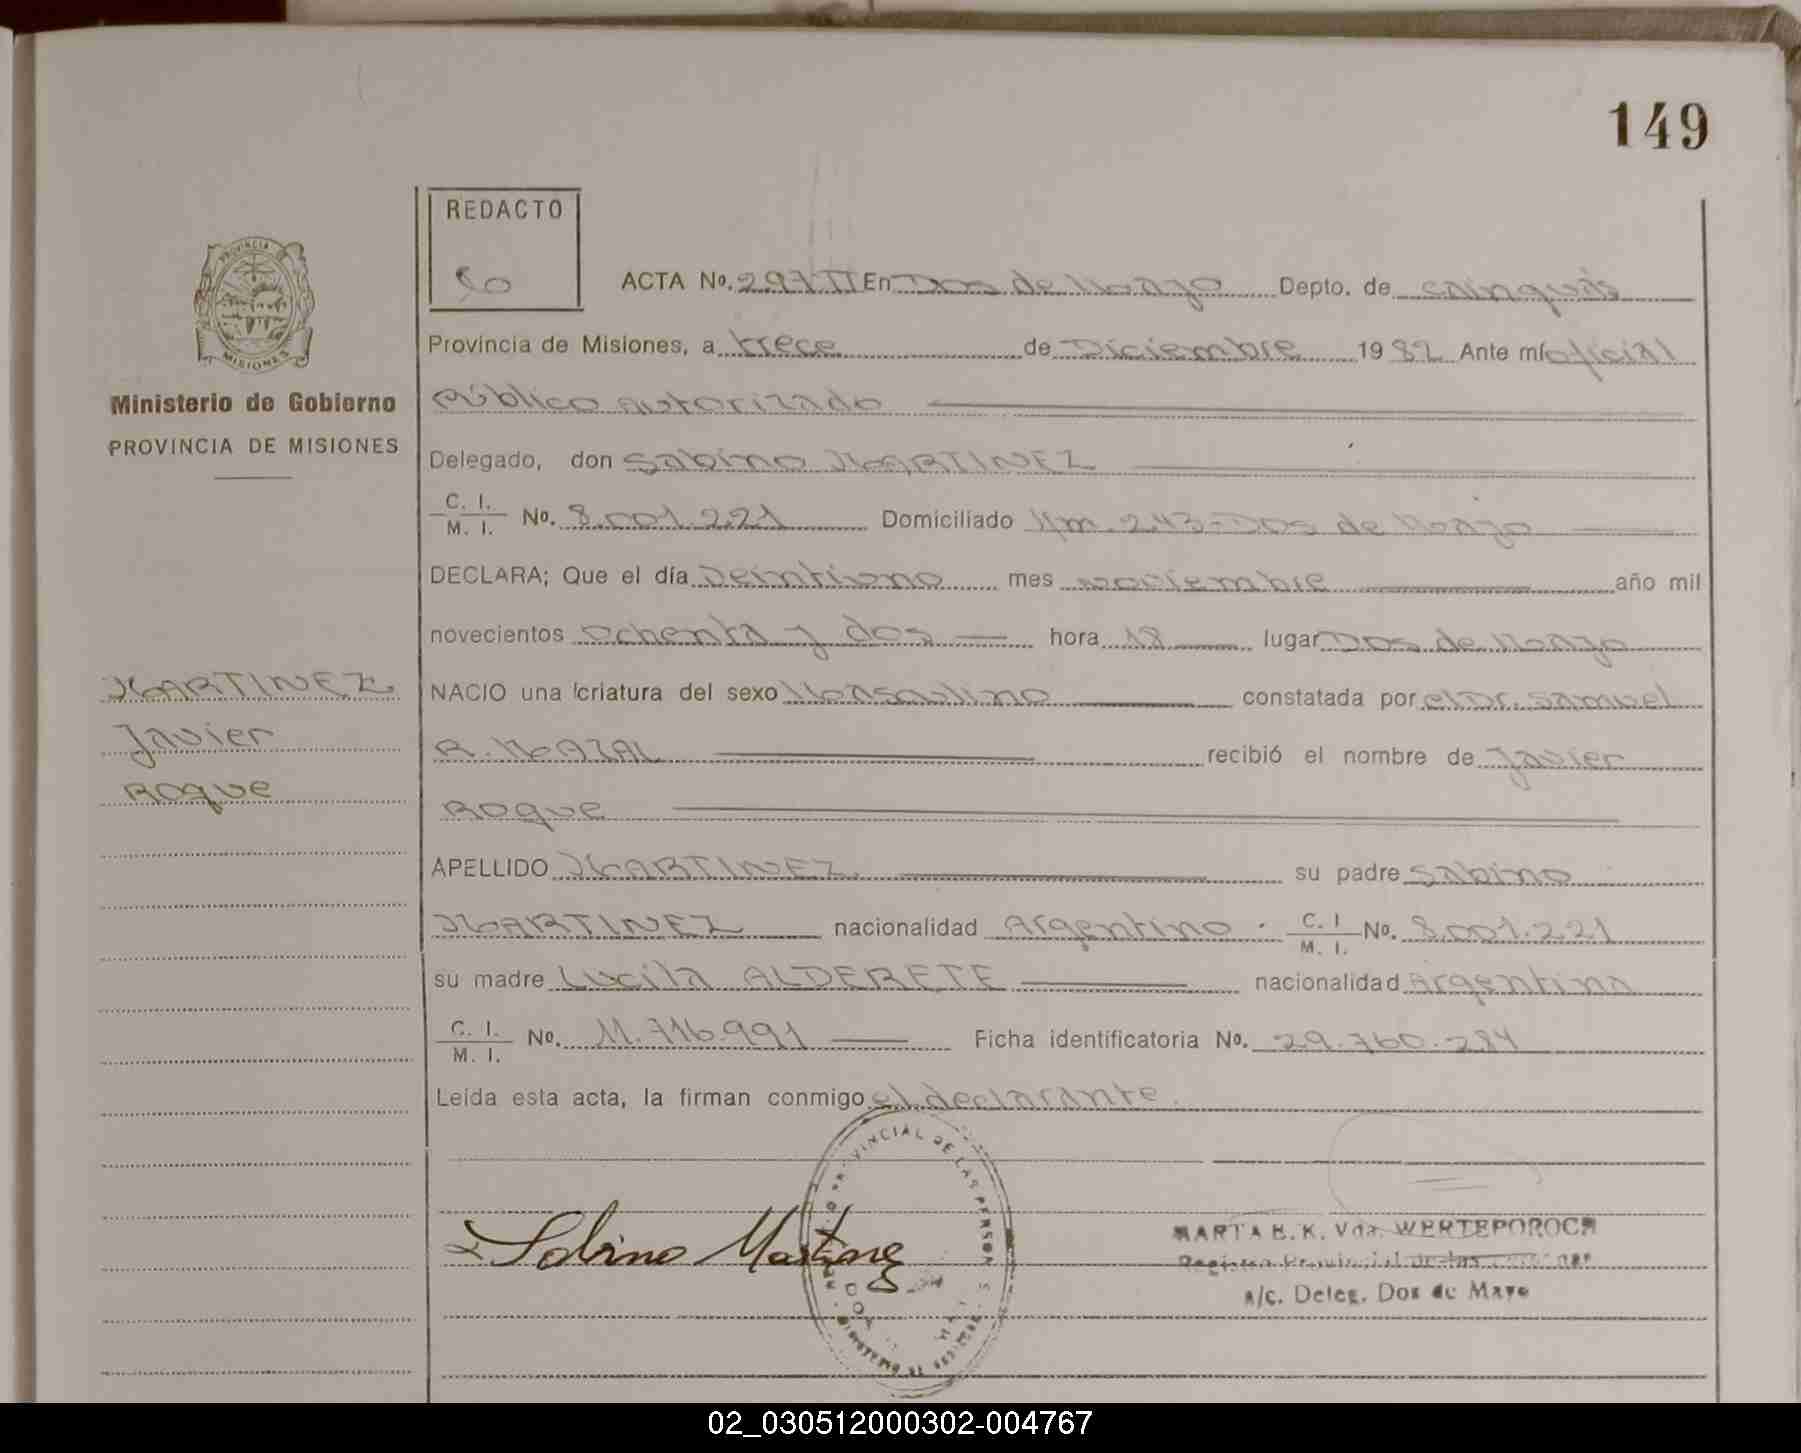 149
REDACTO
ACTA No. 297 II En Dos de Mayo Depto. de Cainguás
Provincia de Misiones, a trece de Diciembre 1982 Ante mí oficial
Público autorizado
Delegado, don Sabino MARTINEZ
C. I.
M. I.
No. 8.001.221 Domiciliado Km. 243-Dos de Mayo
DECLARA; Que el día veintiuno mes noviembre año mil
novecientos ochenta y dos hora 18 lugar Dos de Mayo
NACIO una criatura del sexo Masculino constatada por el Dr. Samuel
R. MAZAL recibió el nombre de Javier
Roque
APELLIDO MARTINEZ su padre Sabino
MARTINEZ nacionalidad Argentino. C. I
M. I.
No. 8.001.221
su madre Lucila ALDERETE nacionalidad Argentina
C. I.
M. I.
No. 11.716.991 Ficha identificatoria No. 29.760.284
Leída esta acta, la firman conmigo el declarante.
PROVINCIA DE
MISIONES
Ministerio de Gobierno
PROVINCIA DE MISIONES
MARTINEZ
Javier
Roque
Sabino Martinez
PROVINCIAL DE LAS PERSONAS
MARTA E. K. Vda. WERTEPOROCH
Registro Provincial de las
a/c. Deleg. Dos de Mayo
02_030512000302-004767